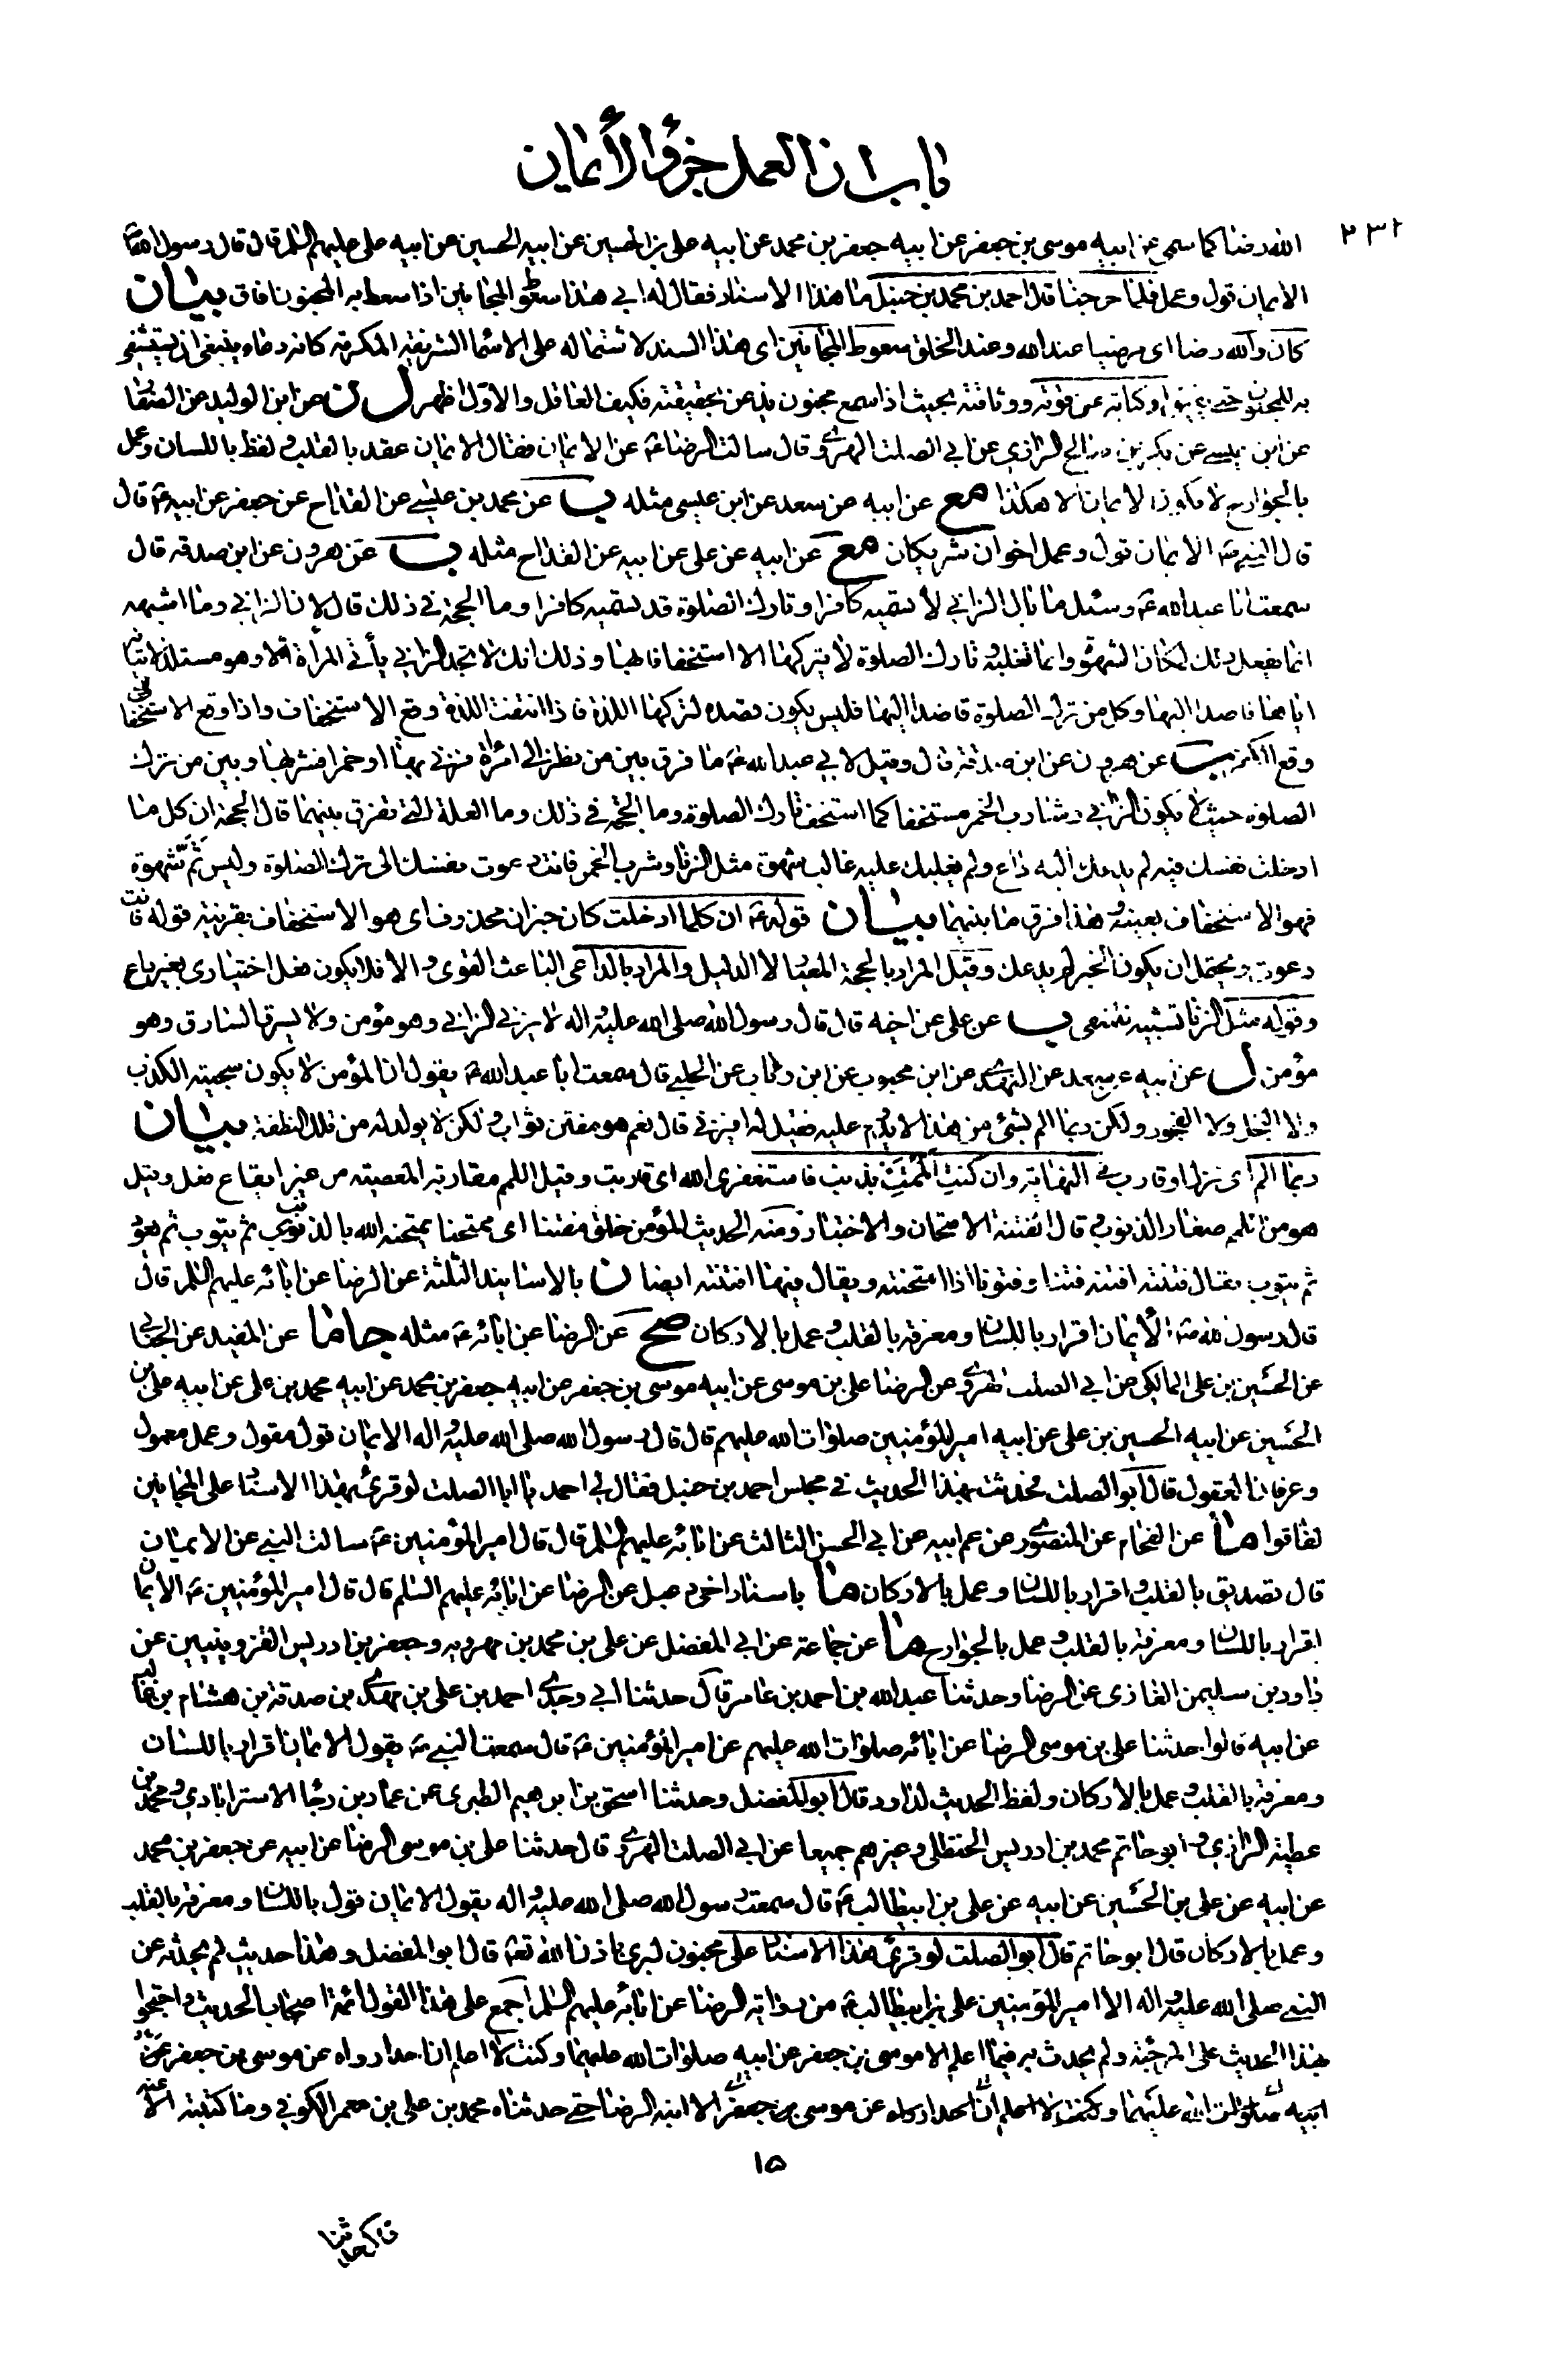 باب ان العمل جزؤ الأيمان
٢٣٢
الله رضا كما سمى عن ابيه موسى بن جعفر عن ابيه جعفر بن محمد عن ابيه على بن الحسين عن ابيه الحسين عن ابيه على عليهم السلم قال قال رسول الله ص
الايمان قول وعمل فلما خرجنا قال احمد بن محمد بن حنبل ما هذا الاسناد فقال له ابى هذا سعوط المجانين اذا سعط به المجنون افاق بيان
كان والله رضا اى مرضيا عند الله وعند الخلق سعوط المجانين اى هذا السند لاشتماله على الاسماء الشريفة المكرمة كانه دعاء ينبغى ان يستشفى
به للمجنون حتى يفيق او كناية عن قوته ووثاقته بحيث اذا سمع مجنون يذعن بحقيقته فكيف العاقل والاول اظهر ل ن عن ابن الوليد عن الصفار
عن ابن عيسى عن بكر بن صالح الرازى عن ابى الصلت الهروى قال سالت الرضا ع عن الايمان فقال الايمان عقد بالقلب و لفظ باللسان وعمل
بالجوارح لا يكون الايمان الا هكذا مع عن ابيه عن سعد عن ابن عيسى مثله ب عن محمد بن عيسى عن القداح عن جعفر عن ابيه ع قال
قال النبى ص الايمان قول وعمل اخوان شريكان مع عن ابيه عن على عن ابيه عن القداح مثله ب عن هرون عن ابن صدقه قال
سمعت ابا عبد الله ع وسئل ما بال الزانى لا تسميه كافرا وتارك الصلوة قد تسميه كافرا وما الحجة فى ذلك قال لان الزانى وما اشبهه
انما يفعل ذلك لمكان الشهوة وانما تغلبه و تارك الصلوة لا يتركها الا استخفافا بها وذلك انك لا تجد الزانى يأتى المرأة الا وهو مستلذ لاتيانه
اياها قاصدا اليها وكل من ترك الصلوة قاصدا اليها فليس يكون قصده لتركها اللذة فاذا انتفت اللذة وقع الاستخفاف واذا وقع الاستخفاف
وقع الكفر ب عن هرون عن ابن صدقة قال وقيل لابى عبد الله ع ما فرق بين من نظر الى امرأة فزنى بها او خمر فشربها وبين من ترك
الصلوة حيث لا يكون الزانى وشارب الخمر مستخفا كما استخف تارك الصلوة وما الحجة فى ذلك وما العلة التى تفرق بينهما قال الحجة ان كل ما
ادخلت نفسك فيه لم يدعك اليه داع ولم يغلبك عليه غالب شهوة مثل الزنا وشرب الخمر فانت دعوت نفسك الى ترك الصلوة وليس ثم شهوة
فهو الاستخفاف بعينه و هذا فرق ما بينهما بيان قوله ع ان كلما ادخلت كان خبر ان محذوف اى هو الاستخفاف بقرينة قوله فانت
دعوت ويحتمل ان يكون الخبر لم يدعك وقيل المراد بالحجة المعيار لا الدليل والمراد بالداعى الباعث القوى والا فلا يكون فعل اختيارى بغير داع
وقوله مثل الزنا تشبيه للمنفى ب عن على عن اخيه قال قال رسول الله صلى الله عليه و اله لا يزنى الزانى وهو مؤمن ولا يسرق السارق وهو
مؤمن ل عن ابيه عن سعد عن النهدى عن ابن محبوب عن ابن رئاب عن الحلبى قال سمعت ابا عبد الله ع يقول ان المؤمن لا يكون سجيته الكذب
ولا البخل ولا الفجور ولكن ربما الم بشئ من هذا لا يدوم عليه فقيل له افيزنى قال نعم هو مفتن تواب و لكن لا يولد له من تلك النطفة بيان
ربما الم اى نزل او قارب فى النهاية وان كنت الممت بذنب فاستغفرى الله اى قاربت وقيل اللمم مقاربة المعصية من غير ايقاع فعل وقيل
هو من اللمم صغار الذنوب و قال الفتنة الامتحان والاختبار ومنه الحديث المؤمن خلق مفتنا اى ممتحنا يمتحنه الله بالذنب ثم يتوب ثم يعود
ثم يتوب يقال فتنته افتنه فتنا وفتونا اذا امتحنته ويقال فيها افتنته ايضا ن بالاسانيد الثلثة عن الرضا عن ابائه عليهم السلم قال
قال رسول الله ص الأيمان اقرار باللسان ومعرفة بالقلب و عمل بالاركان صح عن الرضا عن ابائه ع مثله جا ما عن المفيد عن الجعابى
عن الحسين بن على المالكى عن ابى الصلت الهروى عن الرضا على بن موسى عن ابيه موسى بن جعفر عن ابيه جعفر بن محمد عن ابيه محمد بن على عن ابيه على بن
الحسين عن ابيه الحسين بن على عن ابيه امير المؤمنين صلوات الله عليهم قال قال رسول الله صلى الله عليه و اله الايمان قول مقول وعمل معمول
وعرفان العقول قال ابو الصلت فحدثت بهذا الحديث فى مجلس احمد بن حنبل فقال لى احمد يا ابا الصلت لو قرئ بهذا الاسناد على المجانين
لفاقوا ما عن الفحام عن المنصورى عن عم ابيه عن ابى الحسن الثالث عن ابائه عليهم السلم قال قال امير المؤمنين ع سالت النبى عن الايمان
قال تصديق بالقلب و اقرار باللسان وعمل بالاركان ما باسناد اخى دعبل عن الرضا عن ابائه عليهم السلم قال قال امير المؤمنين ع الايمان
اقرار باللسان ومعرفة بالقلب و عمل بالجوارح ما عن جماعة عن ابى المفضل عن على بن محمد بن مهرويه وجعفر بن ادريس القزوينيين عن
داود بن سليمن الغازى عن الرضا وحدثنا عبد الله بن احمد بن عامر قال حدثنا ابى وحدثنى احمد بن على بن مهدى بن صدقة بن هشام بن غالب
عن ابيه قالوا حدثنا على بن موسى الرضا عن ابائه صلوات الله عليهم عن امير المؤمنين ع قال سمعت النبى ص يقول الايمان اقرار باللسان
ومعرفة بالقلب و عمل بالاركان ولفظ الحديث لداود قال ابو المفضل وحدثنا اسحق بن ابرهيم الطبرى عن عمار بن رجا الاسترابادى و محمد بن
عطية الرازى و ابو حاتم محمد بن ادريس الحنظلى وغيرهم جميعا عن ابى الصلت الهروى قال حدثنا على بن موسى الرضا عن ابيه عن جعفر بن محمد
عن ابيه عن على بن الحسين عن ابيه عن على بن ابيطالب ع قال سمعت رسول الله صلى الله عليه و اله يقول الايمان قول باللسان ومعرفة بالقلب
وعمل بالاركان قال ابو حاتم قال ابو الصلت لو قرئ هذا الاسناد على مجنون لبرئ باذن الله تعه قال ابو المفضل وهذا حديث لم يحدثه عن
النبى صلى الله عليه و اله الا امير المؤمنين على بن ابيطالب ع من رواية الرضا عن ابائه عليهم السلم اجمع على هذا القول ائمة اصحاب الحديث و احتجوا
بهذا الحديث على المرجئة ولم يحدث به فيما اعلم الا موسى بن جعفر عن ابيه صلوات الله عليهما وكنت لا اعلم ان احدا رواه عن موسى بن جعفر عن
ابيه صلوات الله عليهما وكنت لا اعلم ان احدا رواه عن موسى بن جعفر الا ابنه الرضا حتى حدثناه محمد بن على بن معمر الكوفى وما كتبته الا عنه
١٥
قال حدثنا